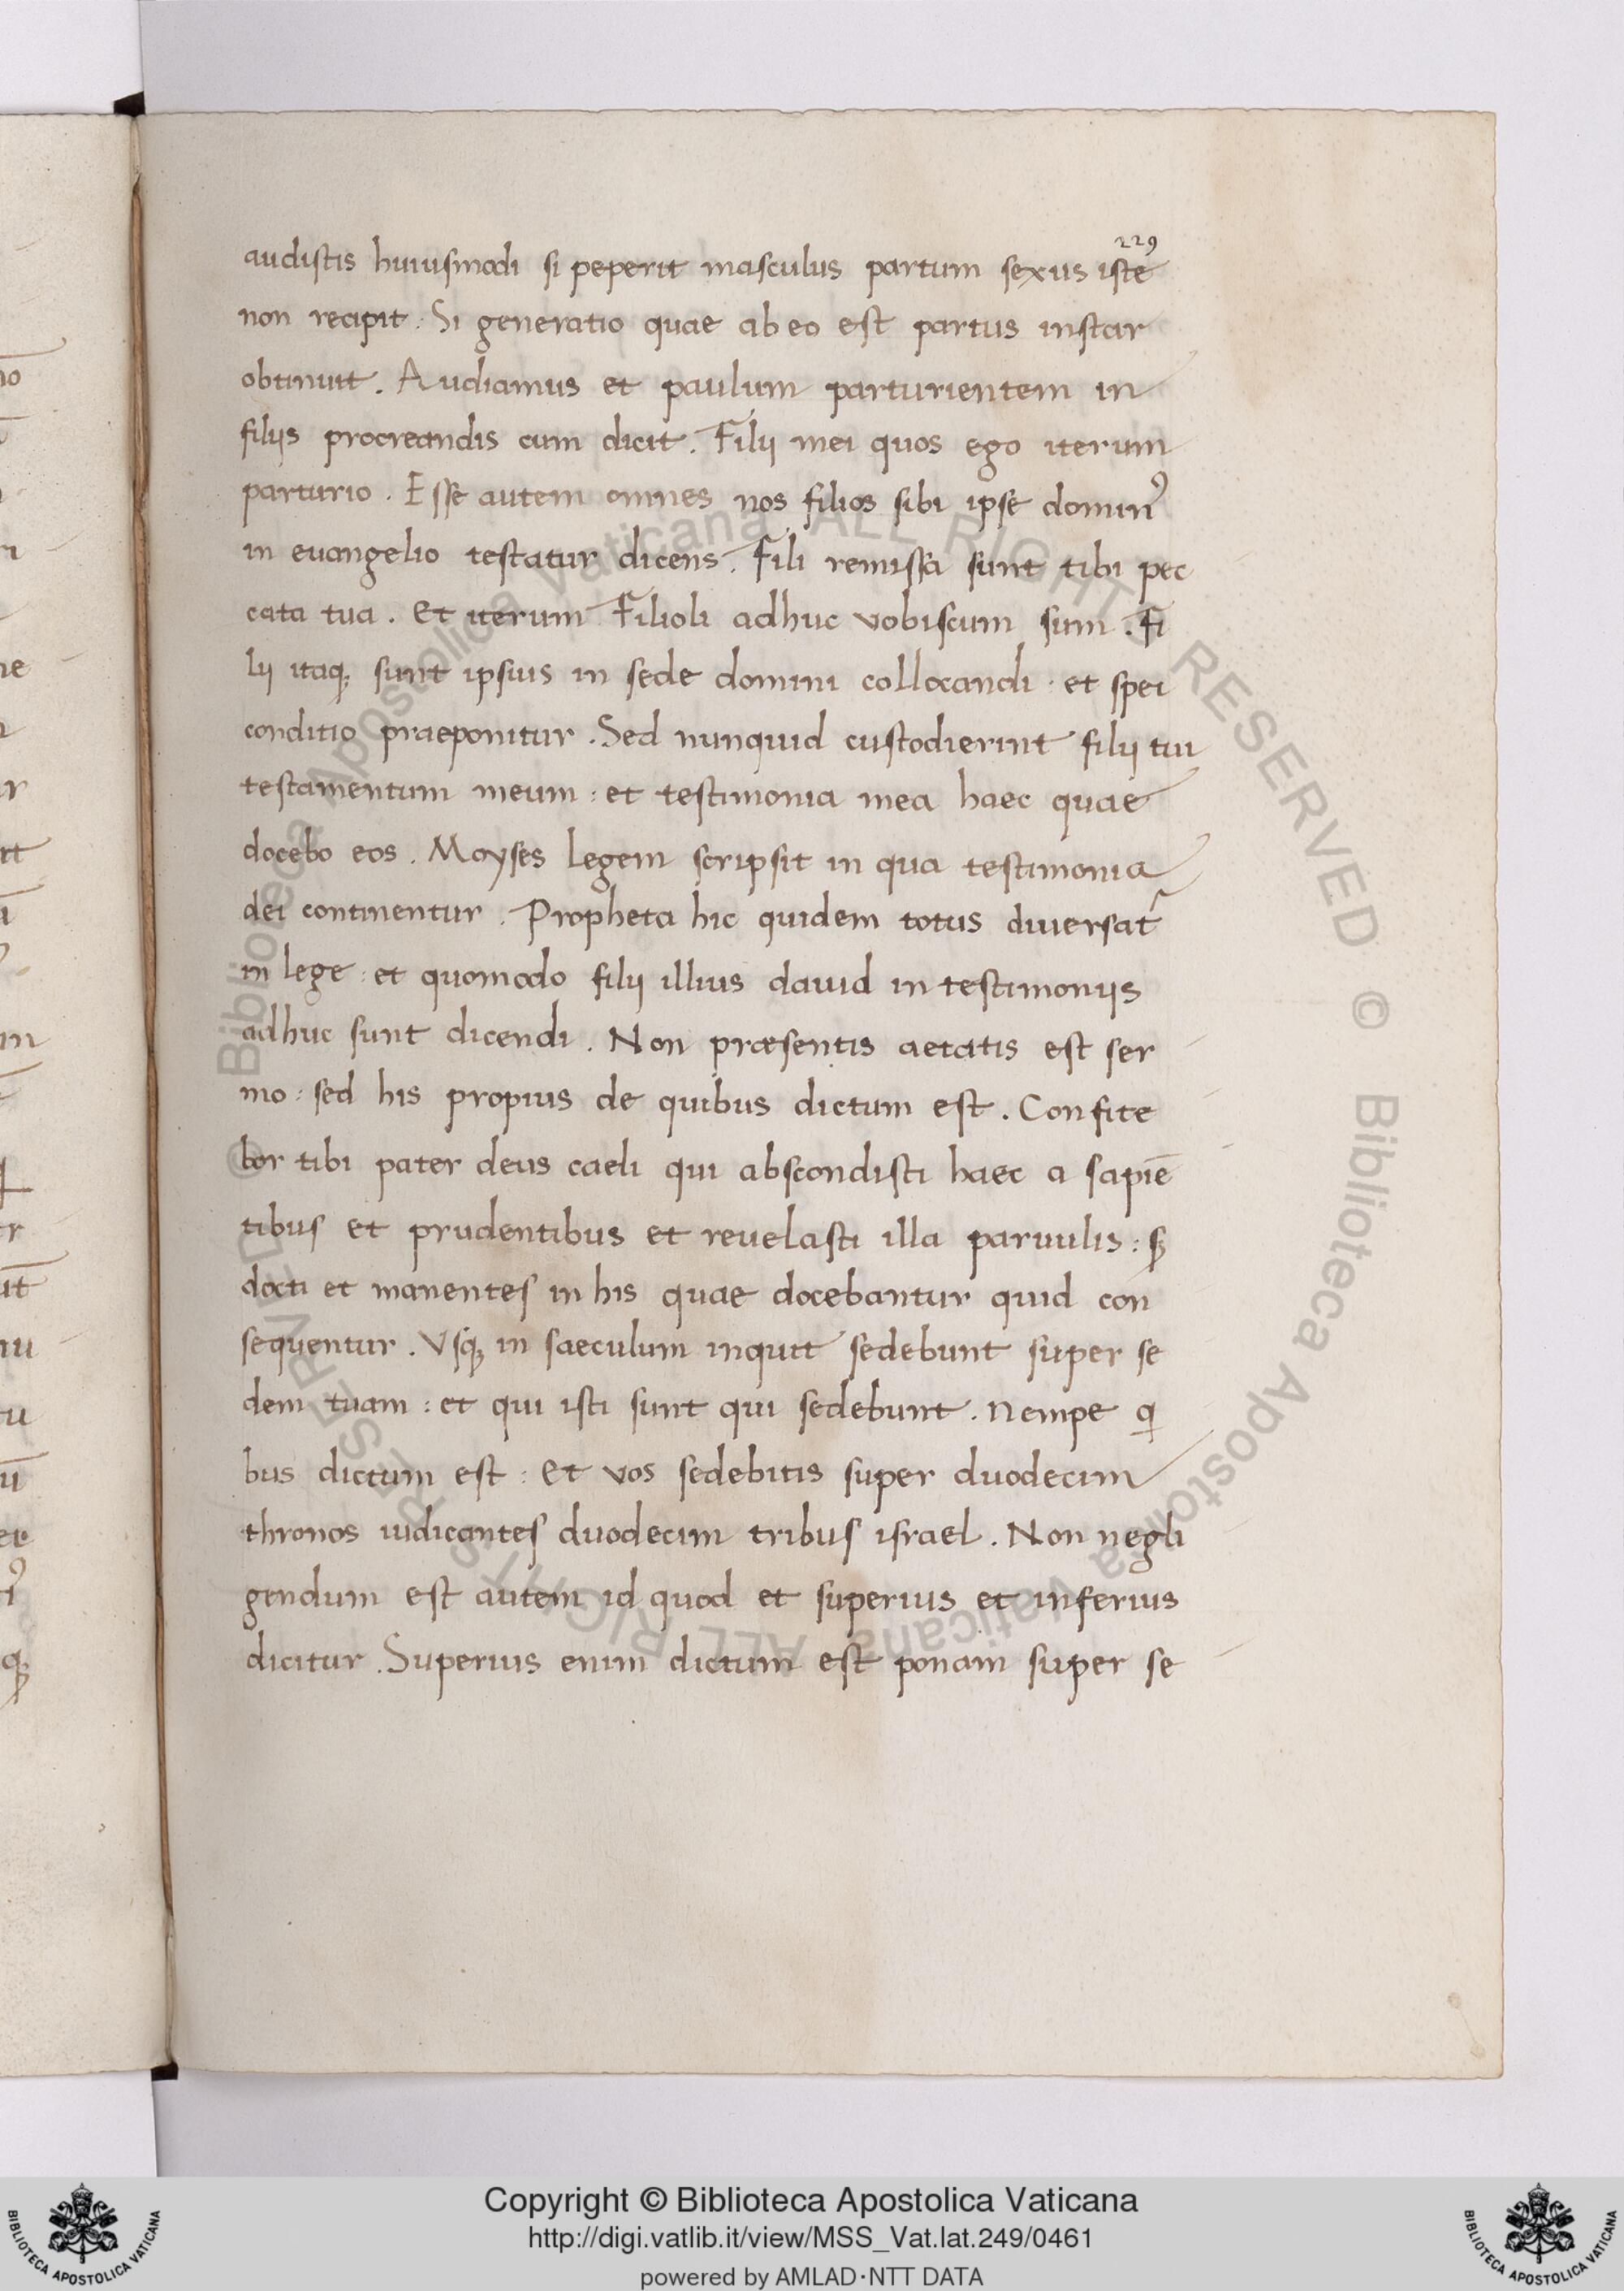 229
audistis huiusmodi si peperit masculus partum sexus iste
non recipit : Si generatio quae ab eo est partus instar
obtinuit . Audiamus et paulum parturientem in
filijs procreandis cum dicit . Filij mei quos ego iterum
parturio . Esse autem omnes nos filios sibi ipse domin⁹
in euangelio testatur dicens . Fili remissa sunt tibi pec
cata tua . Et iterum Filioli adhuc vobiscum sum . Fi
lij itaq; sunt ipsius in sede domini collocandi : et spei
conditio praeponitur . Sed nunquid custodierint filij tui
testamentum meum : et testimonia mea haec quae
docebo eos . Moyses legem scripsit in qua testimonia
dei continentur . Propheta hic quidem totus diuersat᷒
in lege : et quomodo filij illius dauid in testimonijs
adhuc sunt dicendi . Non præsentis aetatis est ser
mo : sed his propius de quibus dictum est . Confite
bor tibi pater deus caeli qui abscondisti haec a sapiē
tibus et prudentibus et reuelasti illa paruulis : sꝫ
docti et manentes in his quae docebantur quid con
sequentur . Vsq; in saeculum inquit sedebunt super se
dem tuam : et qui isti sunt qui sedebunt . Nempe q
bus dictum est : Et vos sedebitis super duodecim
thronos iudicantes duodecim tribus israel . Non negli
gendum est autem id quod et superius et inferius
dicitur . Superius enim dictum est ponam super se
© Biblioteca Apostolica Vaticana ALL RIGHTS RESERVED © Biblioteca Apostolica Vaticana ALL RIGHTS RESERVED
Copyright © Biblioteca Apostolica Vaticana
http://digi.vatlib.it/view/MSS_Vat.lat.249/0461
powered by AMLAD·NTT DATA
BIBLIOTECA APOSTOLICA VATICANA
BIBLIOTECA APOSTOLICA VATICANA